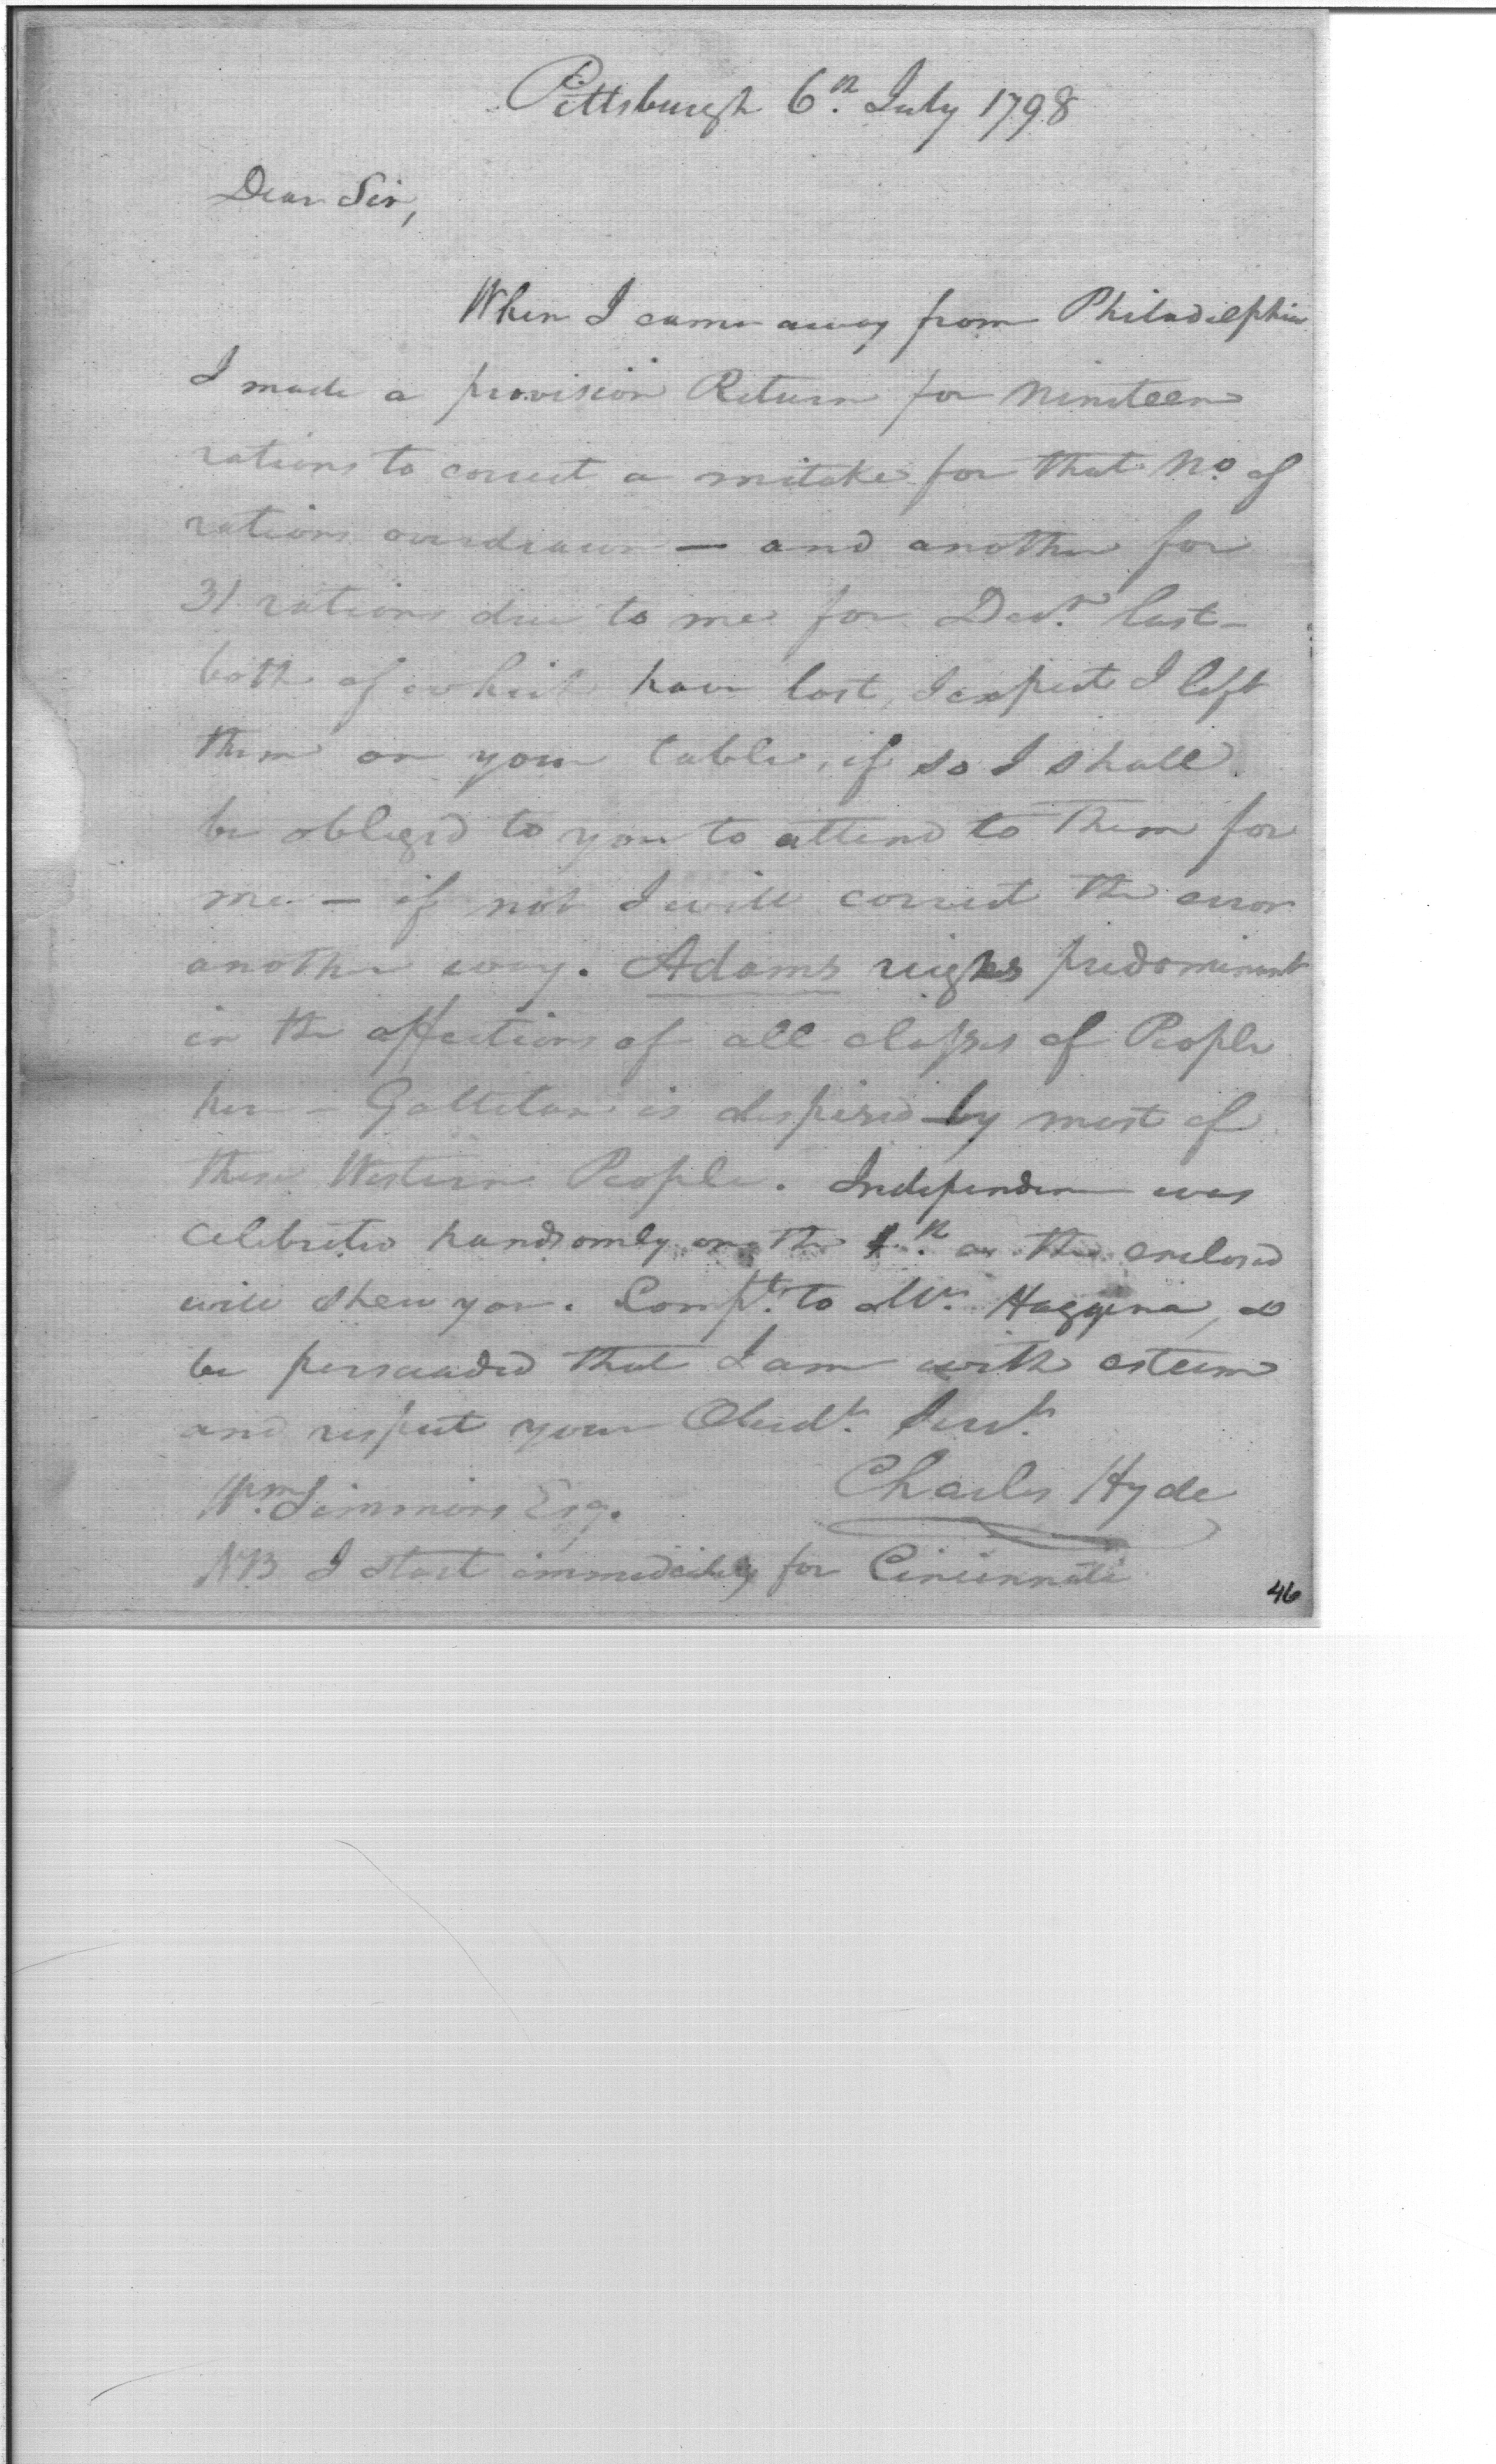 Pittsburgh 6th July 1798
Dear Sir,
When I came away from Philadelphia
I made a provision Return for nineteen
rations to correct a mitake for that No. of
rations overdrawn — and another for
31 rations due to me for Decr. last —
both of which have lost, I expect I left
them on your table, if so I shall
be obliged to you to attend to them for
me — if not I will correct the error
another way. Adams reigns predominant
in the affections of all classes of People
here — Gallitan is despised by most of
these Western People. Independence was
celebrated handsomly on the 4th as the enclosed
will shew you. Compts. to Mr. Haggins, &
be persuaded that I am with esteem
and respect your Obedt. Servt.
Charles Hyde
Wm. Simmons Esq.
NB I start immediately for Cincinnati
46